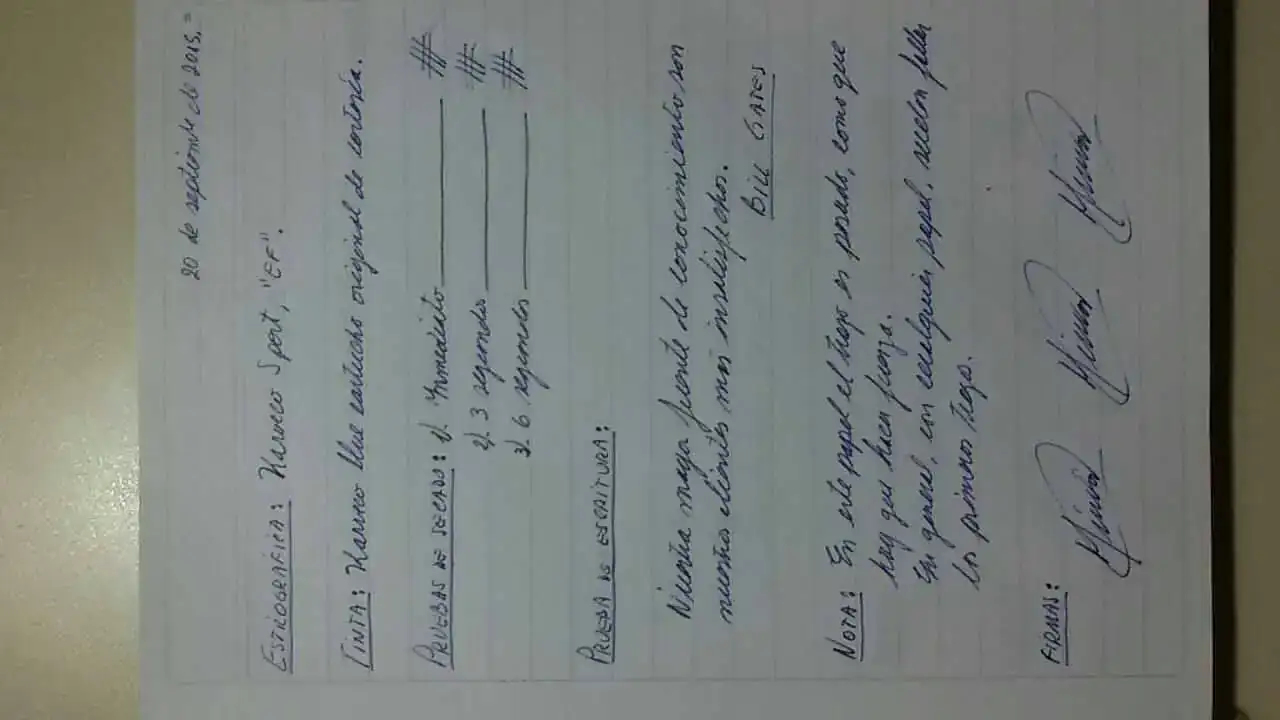 20 de septiembre de 2015.=
ESTILOGRÁFICA: Kaweco Sport, "EF".
TINTA: Kaweco blue cartucho original de cortesía.
PRUEBAS DE SECADO: 1). Inmediato
2). 3 segundos
3). 6 segundos
PRUEBA DE ESCRITURA:
Nuestra mayor fuente de conocimiento son
nuestros clientes más insatisfechos.
BILL GATES
NOTA: En este papel el trazo es pesado, como que
hay que hacer fuerza.
En general, con cualquier papel, suelen fallar
los primeros trazos.
FIRMAS: